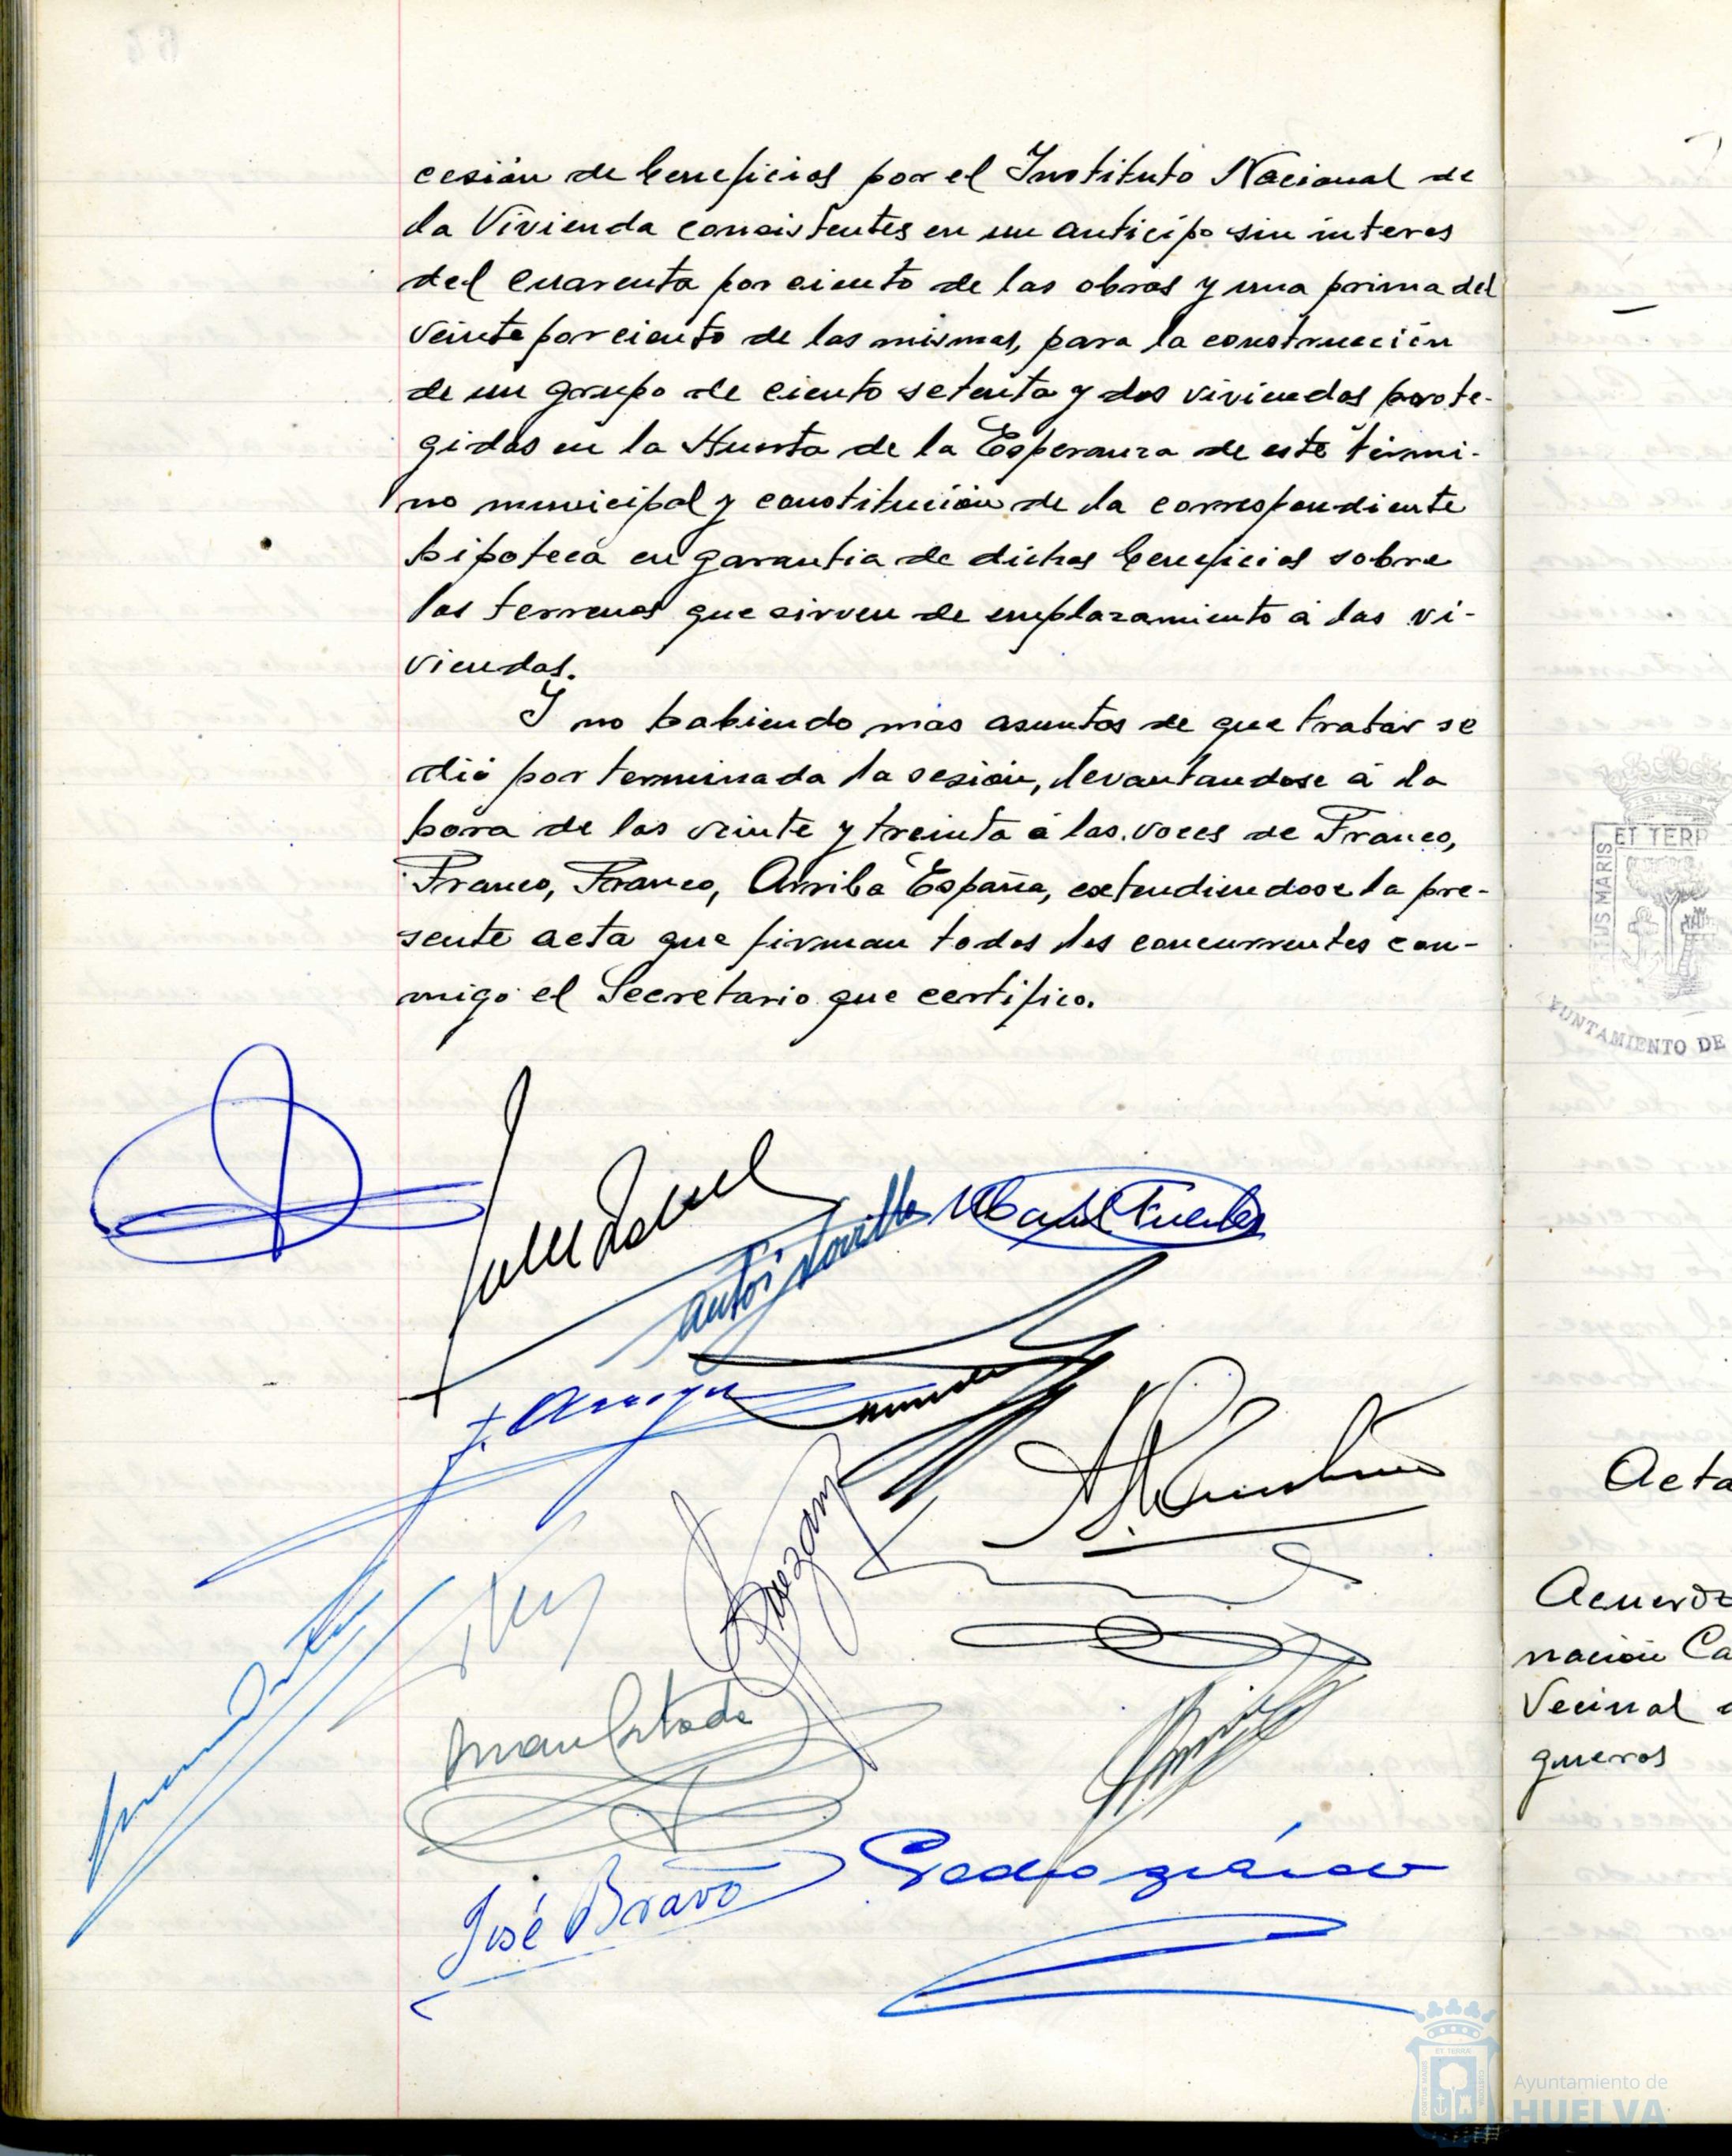 cesión de beneficios por el Instituto Nacional de
la Vivienda consistentes en un anticipo sin interes
del cuarenta por ciento de las obras y una prima del
veinte por ciento de las mismas, para la construcción
de un grupo de ciento setenta y dos viviendas prote-
gidas en la Huerta de la Esperanza de este térmi-
no municipal y constitución de la correspondiente
hipoteca en garantia de dichos beneficios sobre
los terrenos que sirven de emplazamiento á las vi-
viendas.
Y no habiendo mas asuntos de que tratar se
dió por terminada la sesión, levantandose á la
hora de las veinte y treinta á las voces de Franco,
Franco, Franco, Arriba España, extendiendose la pre-
sente acta que firman todos los concurrentes con-
migo el Secretario que certifico.
Fuentes
José Bravo
ET TERR
MARIS
AYUNTAMIENTO DE
Acta
Acuerdo
nación Ca
Vecinal
gueros
Ayuntamiento de
HUELVA